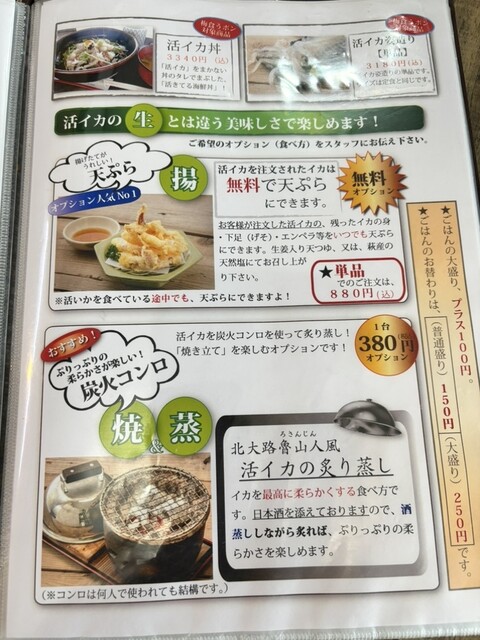 梅食うポン
対象商品
活イカ丼
3340円(込)
「活イカ」をまかない
丼のタレでまぶした、
「活きてる海鮮丼」!
梅食うポン
対象商品
活イカ姿造り
【単品】
3180円(込)
イカ姿造りの単品です。
ズは定食と同じです。
活イカの 生 とは違う美味しさで楽しめます!
ご希望のオプション(食べ方)をスタッフにお伝え下さい。
揚げたてが
うれしい!
天ぷら
オプション人気No1
揚
活イカを注文されたイカは
無料で天ぷら
にできます。
無料
オプション
お客様が注文した活イカの、残ったイカの身
・下足(げそ)・エンペラ等をいつでも天ぷら
にできます。生姜入り天つゆ、又は、萩産の
天然塩にてお召し上が
り下さい。
★単品
でのご注文は、
880円(込)
※活いかを食べている途中でも、天ぷらにできますよ!
おすすめ!
ぷりっぷりの
柔らかさが楽しい!
炭火コンロ
活イカを炭火コンロを使って炙り蒸し!
「焼き立て」を楽しむオプションです!
1台
380円(税込)
オプション
焼&蒸
北大路魯山人風
ろさんじん
活イカの炙り蒸し
イカを最高に柔らかくする食べ方で
す。日本酒を添えておりますので、酒
蒸ししながら炙れば、ぷりっぷりの柔
らかさを楽しめます。
(※コンロは何人で使われても結構です。)
★ごはんの大盛り、プラス100円。
★ごはんのお替わりは、(普通盛り)150円(大盛り)250円です。